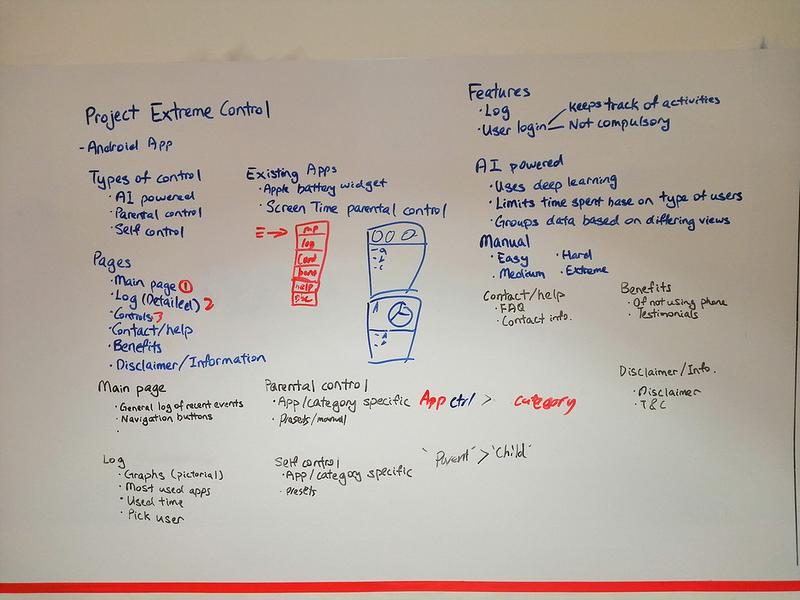 Project Extreme Control
- Android App
Types of control
· AI powered
· Parental control
· Self control
Existing Apps
· Apple battery widget
· Screen Time parental control
Pages
· Main page 1
· Log (Detailed) 2
· Controls 3
· Contact/help
· Benefits
· Disclaimer/Information
E →
mp
log
Cont
bene
help
Disc
- a
- b
- c
A
Features
· Log
· User login
keeps track of activities
Not compulsory
AI powered
· Uses deep learning
· Limits time spent base on type of users
· Groups data based on differing views
Manual
· Easy
· Hard
· Medium
· Extreme
Contact/help
· FAQ
· Contact info.
Benefits
· Of not using phone
· Testimonials
Main page
· General log of recent events
· Navigation buttons
·
Parental control
· App/category specific
· Presets/manual
App ctrl > category
Disclaimer/Info.
· Disclaimer
· T&C
Log
· Graphs (pictorial)
· Most used apps
· Used time
· Pick user
Self control
· App/category specific
· presets
"Parent" > "Child"